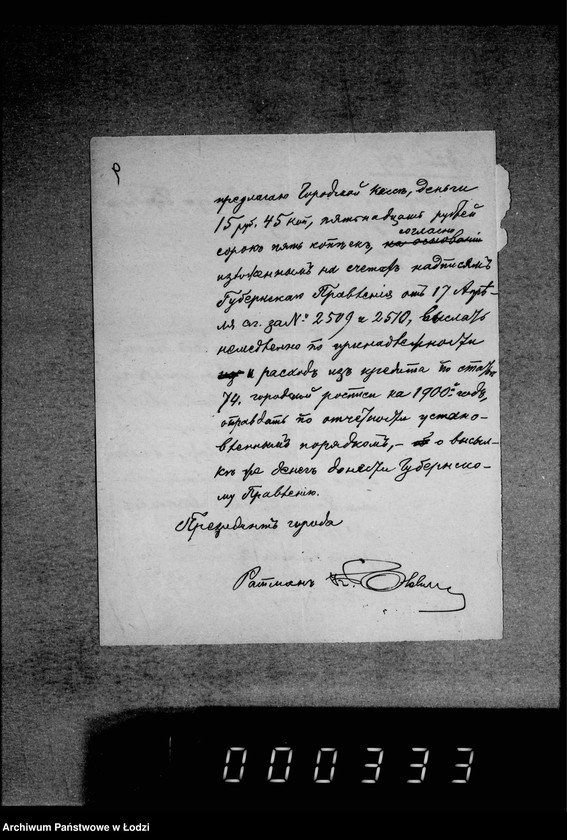 9
предлагаю Городской кассѣ, деньги
15 руб. 45 коп, пятнадцать рублей
согласно
сорокъ пять копѣекъ, на основаніи
изложеннымъ на счетахъ надписямъ
Губернскаго Правленія отъ 17 Апрѣ-
ля с.г. за № 2509 и 2510, выслать
немедленно по принадлежности
и расходъ изъ кредита по статьѣ
74. городской росписи на 1900 годъ,
оправдать по отчетности установ-
вленнымъ порядкомъ, - о высыл-
кѣ же денегъ донести Губернско-
му Правленію.
Президентъ города
Ратманъ К.
000333
Archiwum Państwowe w Łodzi